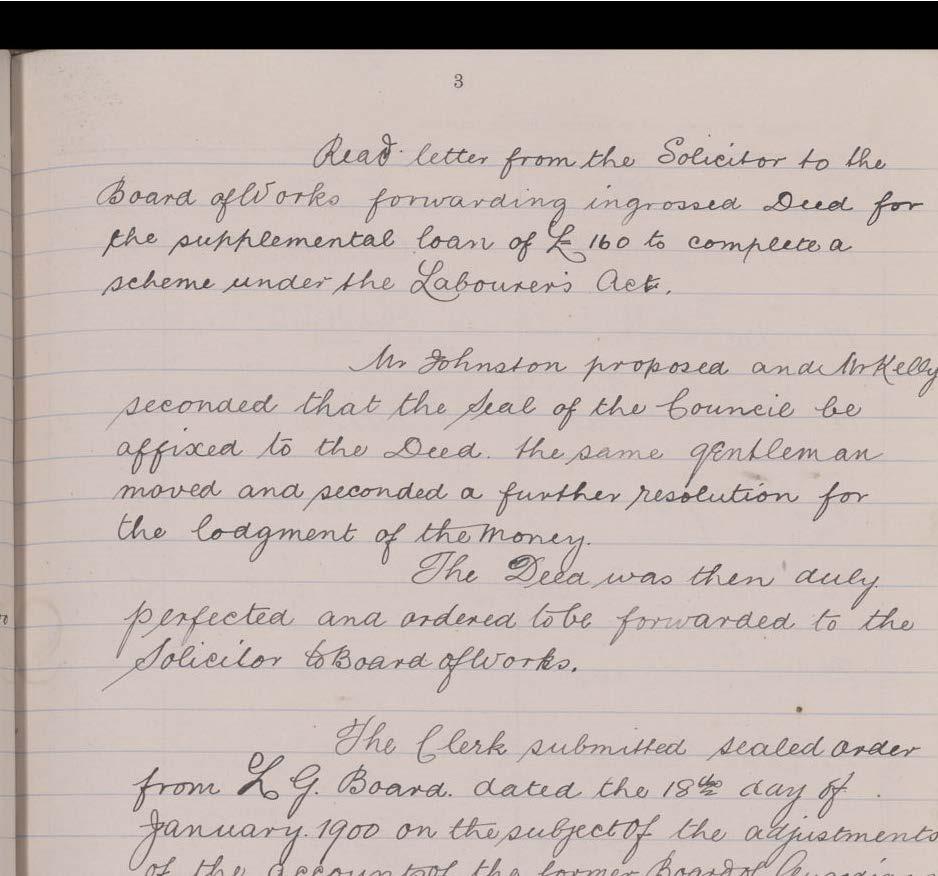 3
Read letter from the Solicitor to the
Board of Works forwarding ingrossed Deed for
the supplemental loan of £160 to complete a
scheme under the Labourer's Act.
Mr Johnston proposed and Mr Kelly
seconded that the Seal of the Council be
affixed to the Deed. the same gentleman
moved and seconded a further resolution for
the lodgment of the Money.
The Deed was then duly
perfected and ordered to be forwarded to the
Solicitor to Board of Works.
The Clerk submitted sealed order
from L G. Board. dated the 18th day of
January. 1900 on the subject of the adjustments
of the accounts of the former Board of